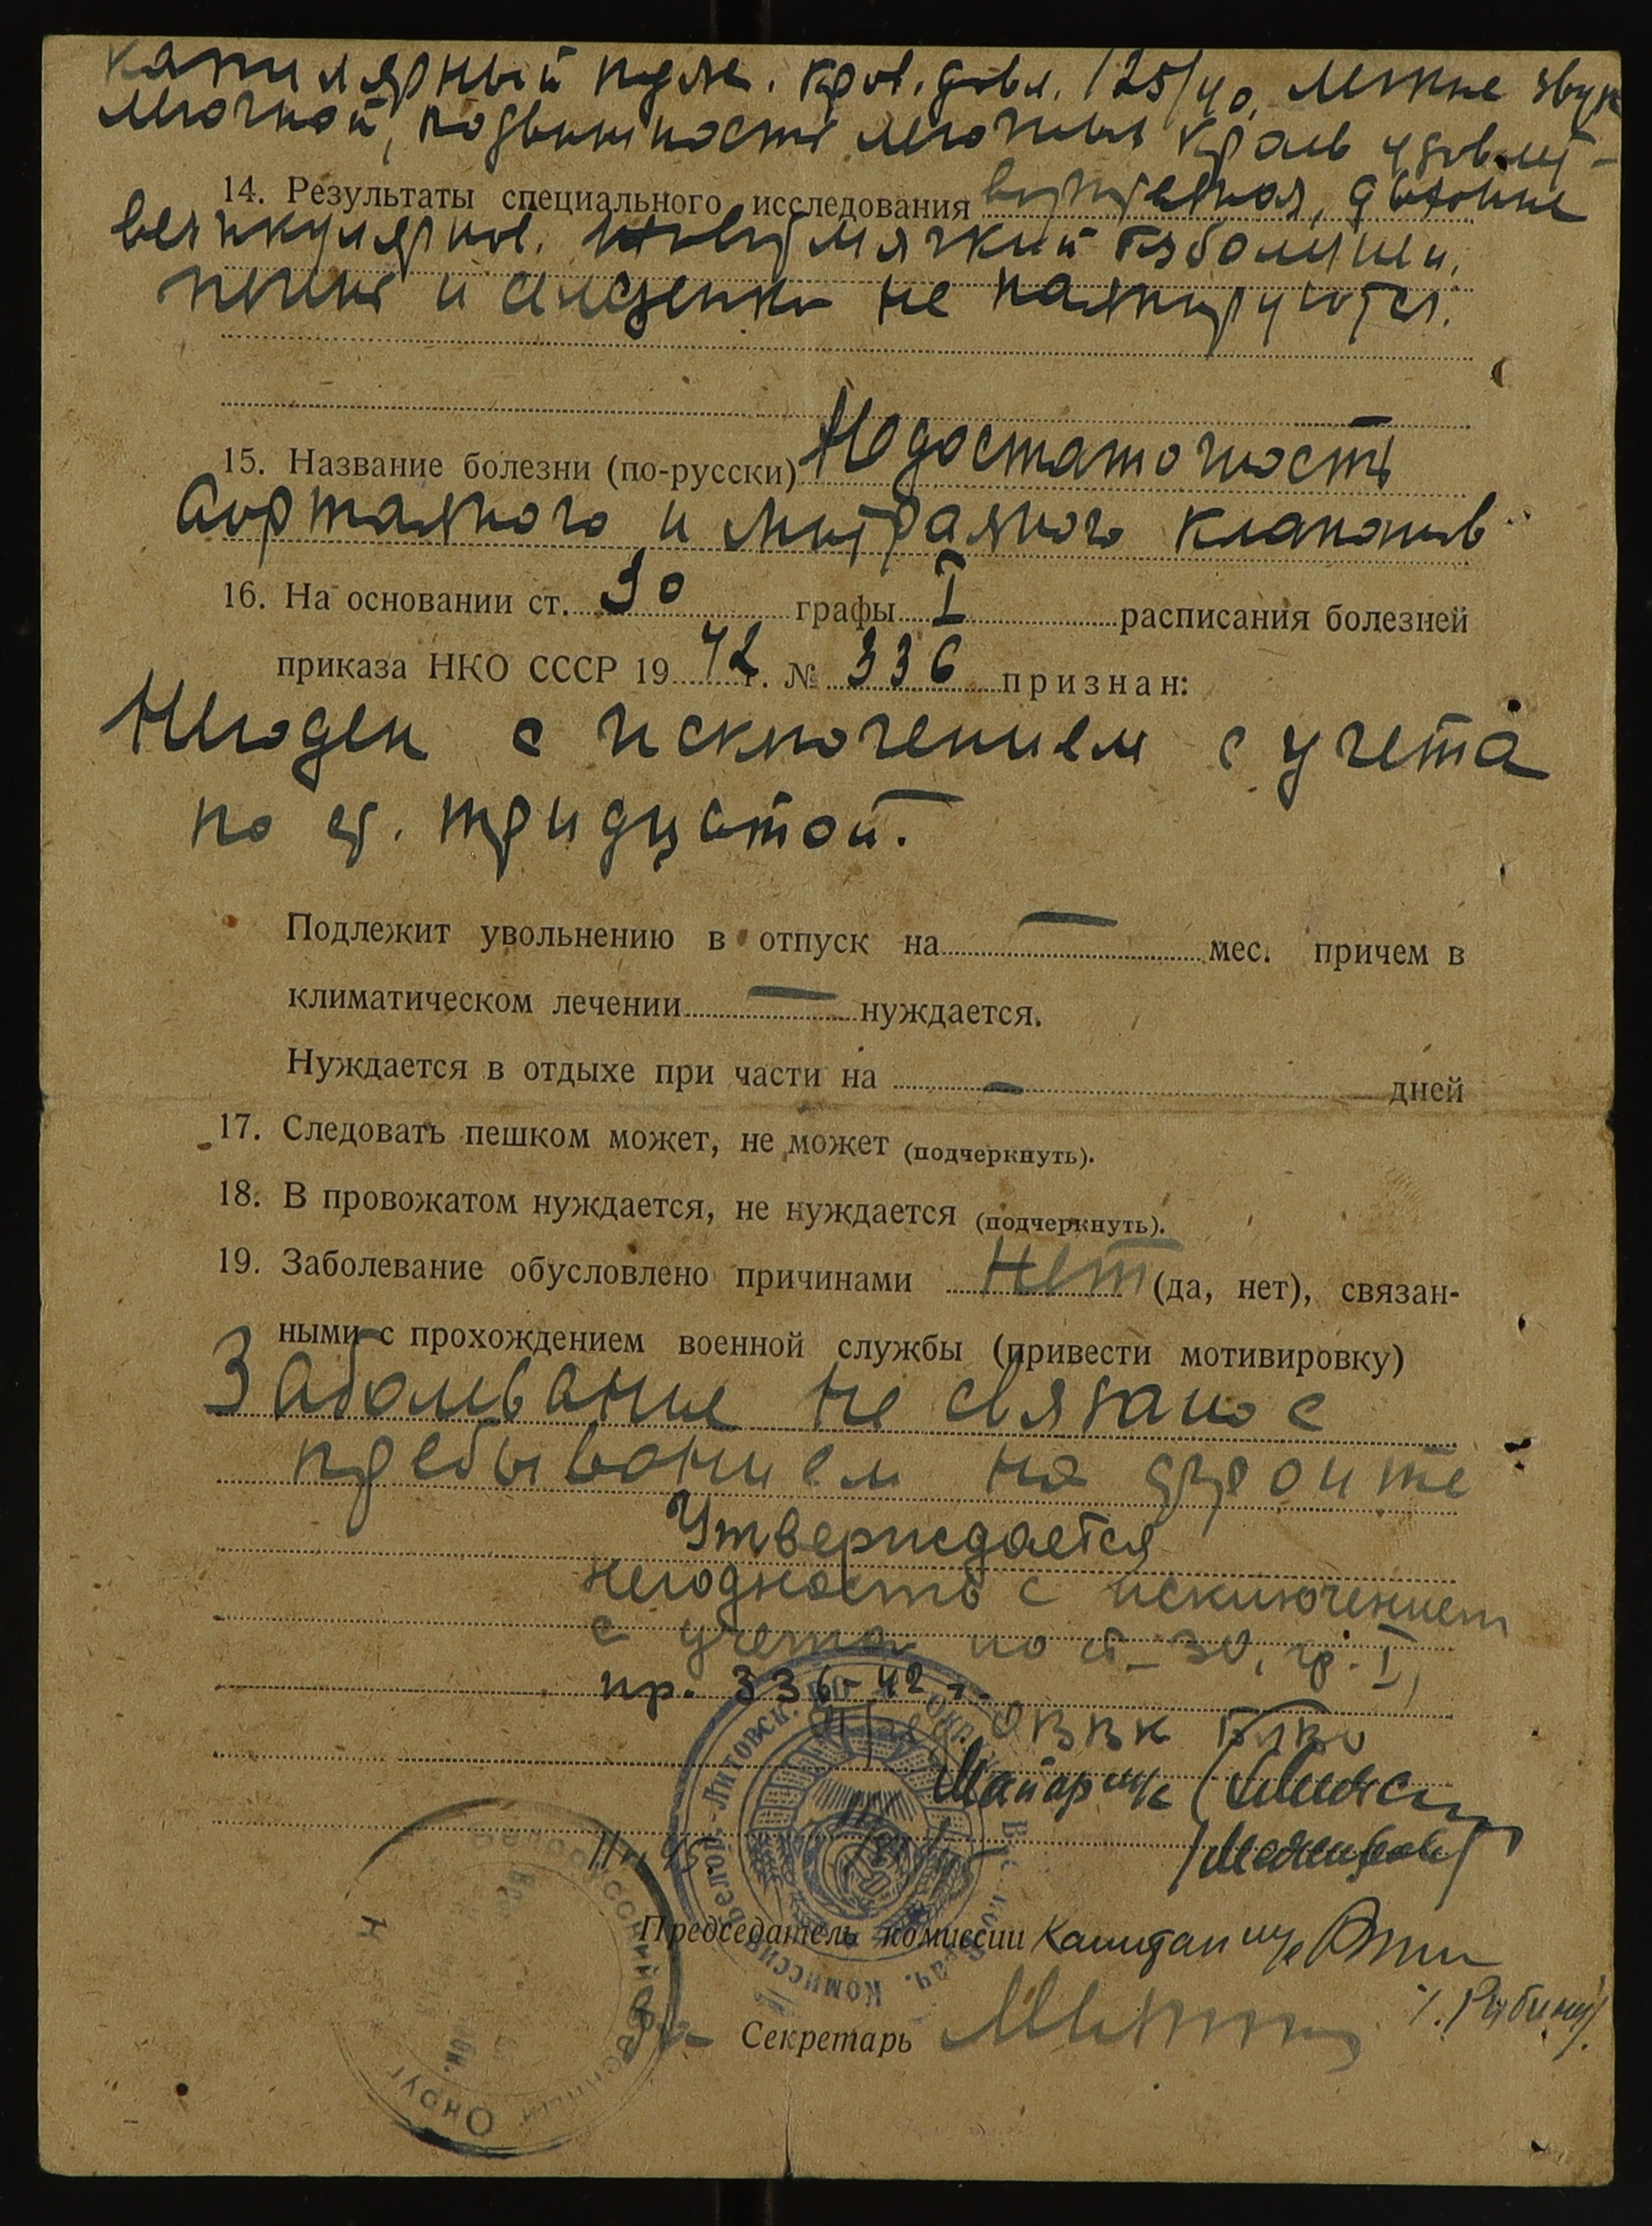 капилярный пульс. кров. давл. 125/40, легкие звук
легочной, подвижность легочных краев удовлет-
14. Результаты специального исследования ворительная, дыхание
везикулярное. Живот мягкий безболезн.
печень и селезенка не пальпируются.
15. Название болезни (по-русски) Недостаточность
Аортального и митрального клапанов
16. На основании ст. 30 графы I расписания болезней
приказа НКО СССР 1942 г. № 336 признан:
Негоден с исключением с учета
по ст. тридцатой.
Подлежит увольнению в отпуск на — мес. причем в
климатическом лечении — нуждается.
Нуждается в отдыхе при части на — дней
17. Следовать пешком может, не может (подчеркнуть).
18. В провожатом нуждается, не нуждается (подчеркнуть).
19. Заболевание обусловлено причинами Нет (да, нет), связан-
ными с прохождением военной службы (привести мотивировку)
Заболевание не связано с
пребыванием на фронте
Утверждается
негодность с исключением
с учета по ст. 30, гр. I,
пр. 336-42 г.
ОВВК БЛВО
Майор м/с
Председатель комиссии Капитан м/с
Секретарь
Белор.-Литовск. Комиссия
Белорусский Военный Округ